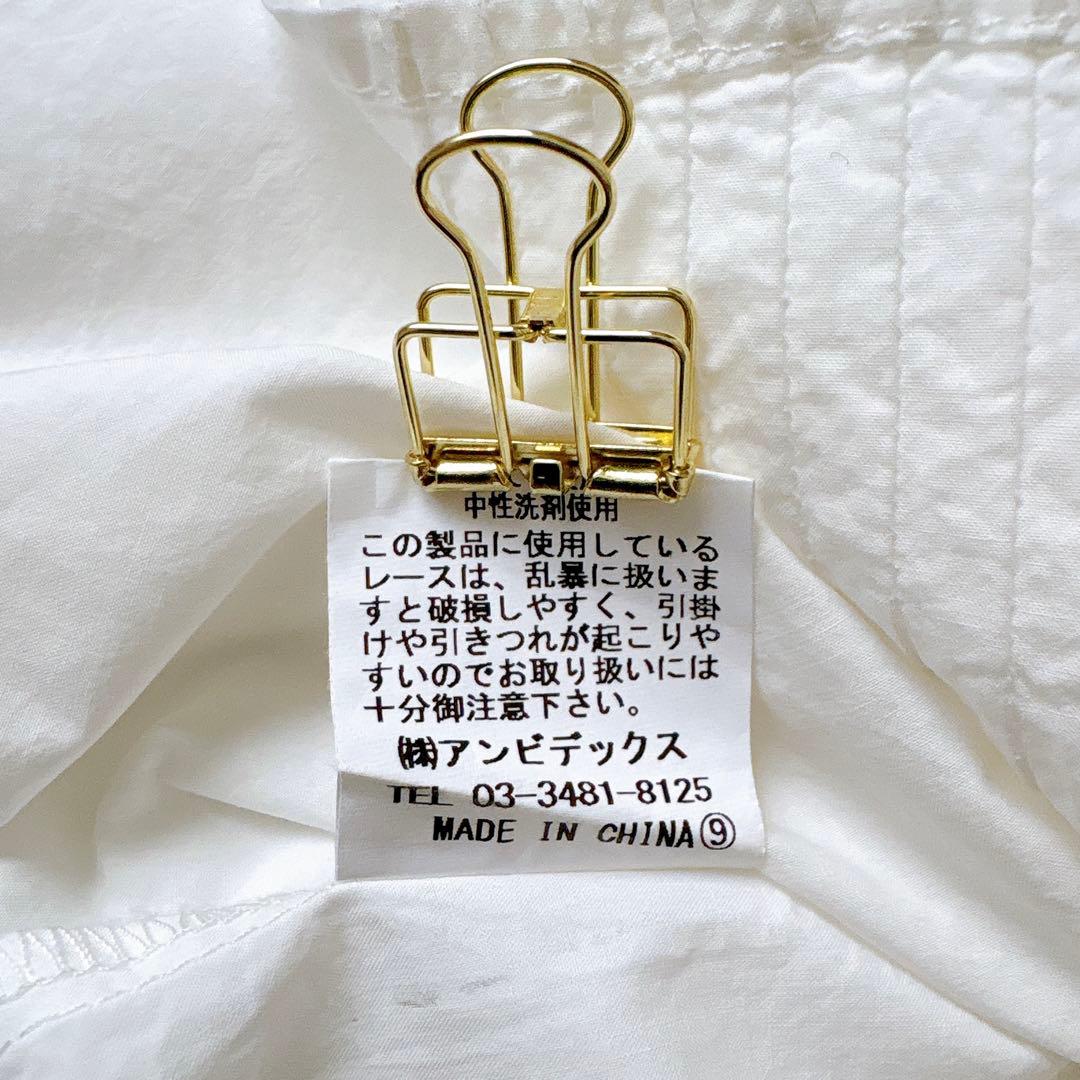 中性洗剤使用
この製品に使用している
レースは、乱暴に扱いま
すと破損しやすく、引掛
けや引きつれが起こりや
すいのでお取り扱いには
十分御注意下さい。
㈱アンビデックス
TEL 03-3481-8125
MADE IN CHINA⑨